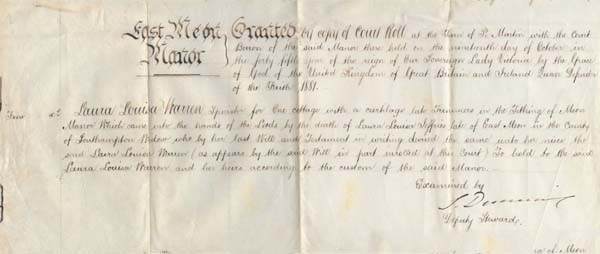 East Meon Manor
Granted by copy of Court Roll at the Time of St Martin with the Court
Baron of the said Manor there held on the nineteenth day of October in
the forty fifth year of the reign of Our Sovereign Lady Victoria by the Grace
of God of the United Kingdom of Great Britain and Ireland Queen Defender
of the Faith 1881.
to Laura Louisa Warren Spinster for One cottage with a curtilage late Trimmers in the Tithing of Meon
Manor Which came into the hands of the Lords by the death of Laura Louisa late of East Meon in the County
of Southampton Widow who by her last Will and Testament in writing devised the same unto her niece the
said Laura Louisa Warren (as appears by the said Will in part enrolled at this Court) To hold to the said
Laura Louisa Warren and her heirs according to the custom of the said Manor.
Examined by
Deputy Steward.
of Meon